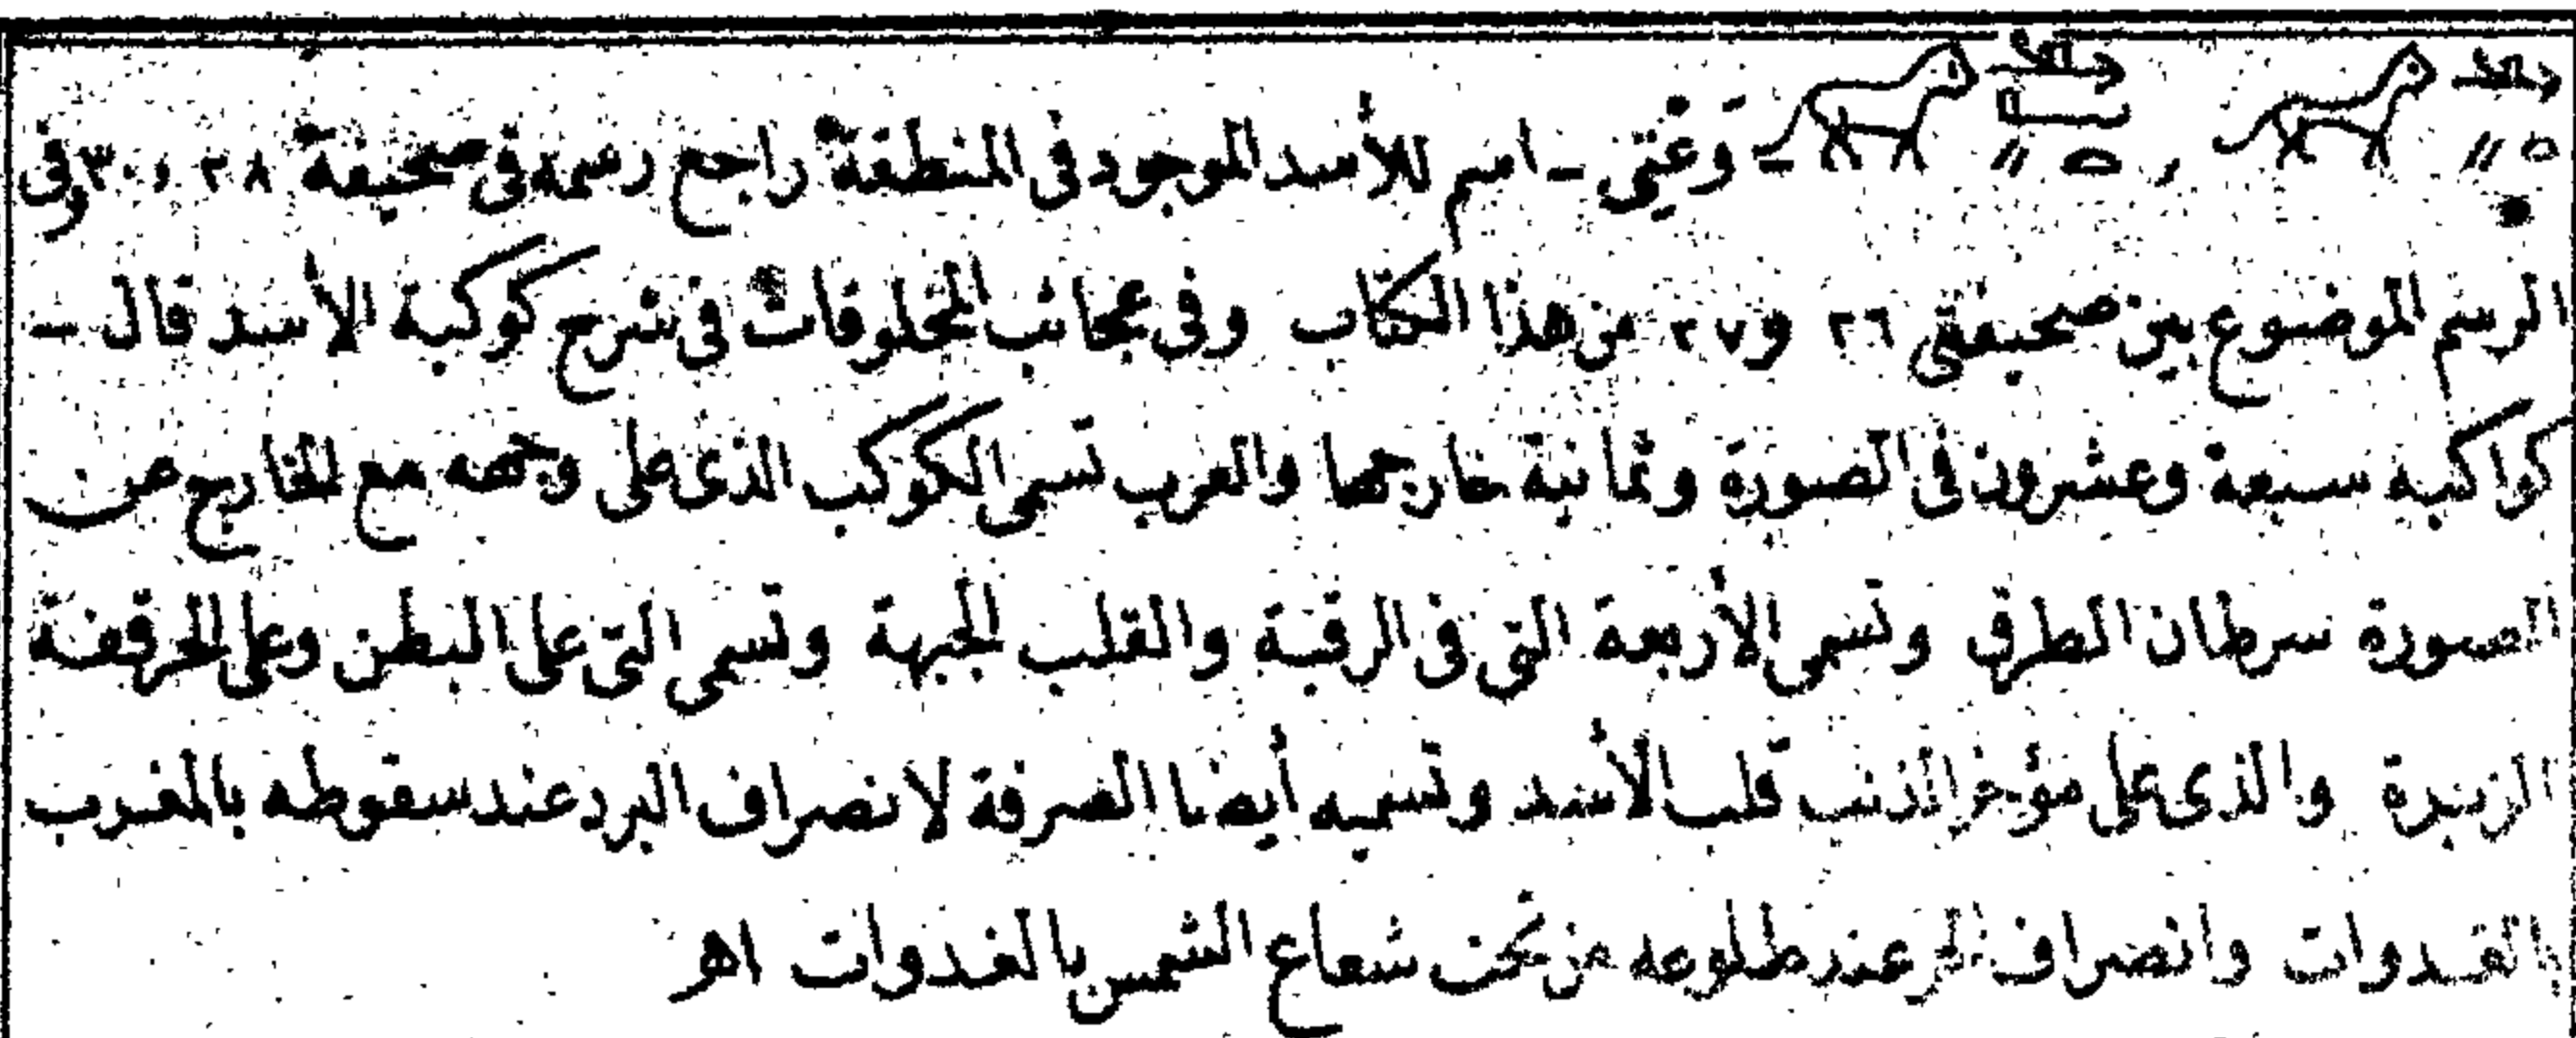 وَغَتِى - اسم للأسد الموجود فى المنطقة راجع رسمه فى صحيفة ٢٨ و ٣٠ وفى
الرسم الموضوع بين صحيفتى ٢٦ و ٢٧ من هذا الكتاب وفى عجائب المخلوقات فى شرح كوكبة الأسد قال -
كواكبه سبعة وعشرون فى الصورة وثمانية خارجها والعرب تسمى الكوكب الذى على وجهه مع الخارج عن
الصورة سرطان الطرف وتسمى الأربعة التى فى الرقبة والقلب الجبهة وتسمى التى على البطن وعلى الحرقفة
الزبرة والذى على مؤخر الذنب قلب الأسد وتسميه أيضا الصرفة لانصراف البرد عند سقوطه بالمغرب
بالغدوات وانصراف الحر عند طلوعه من تحت شعاع الشمس بالغدوات اهـ